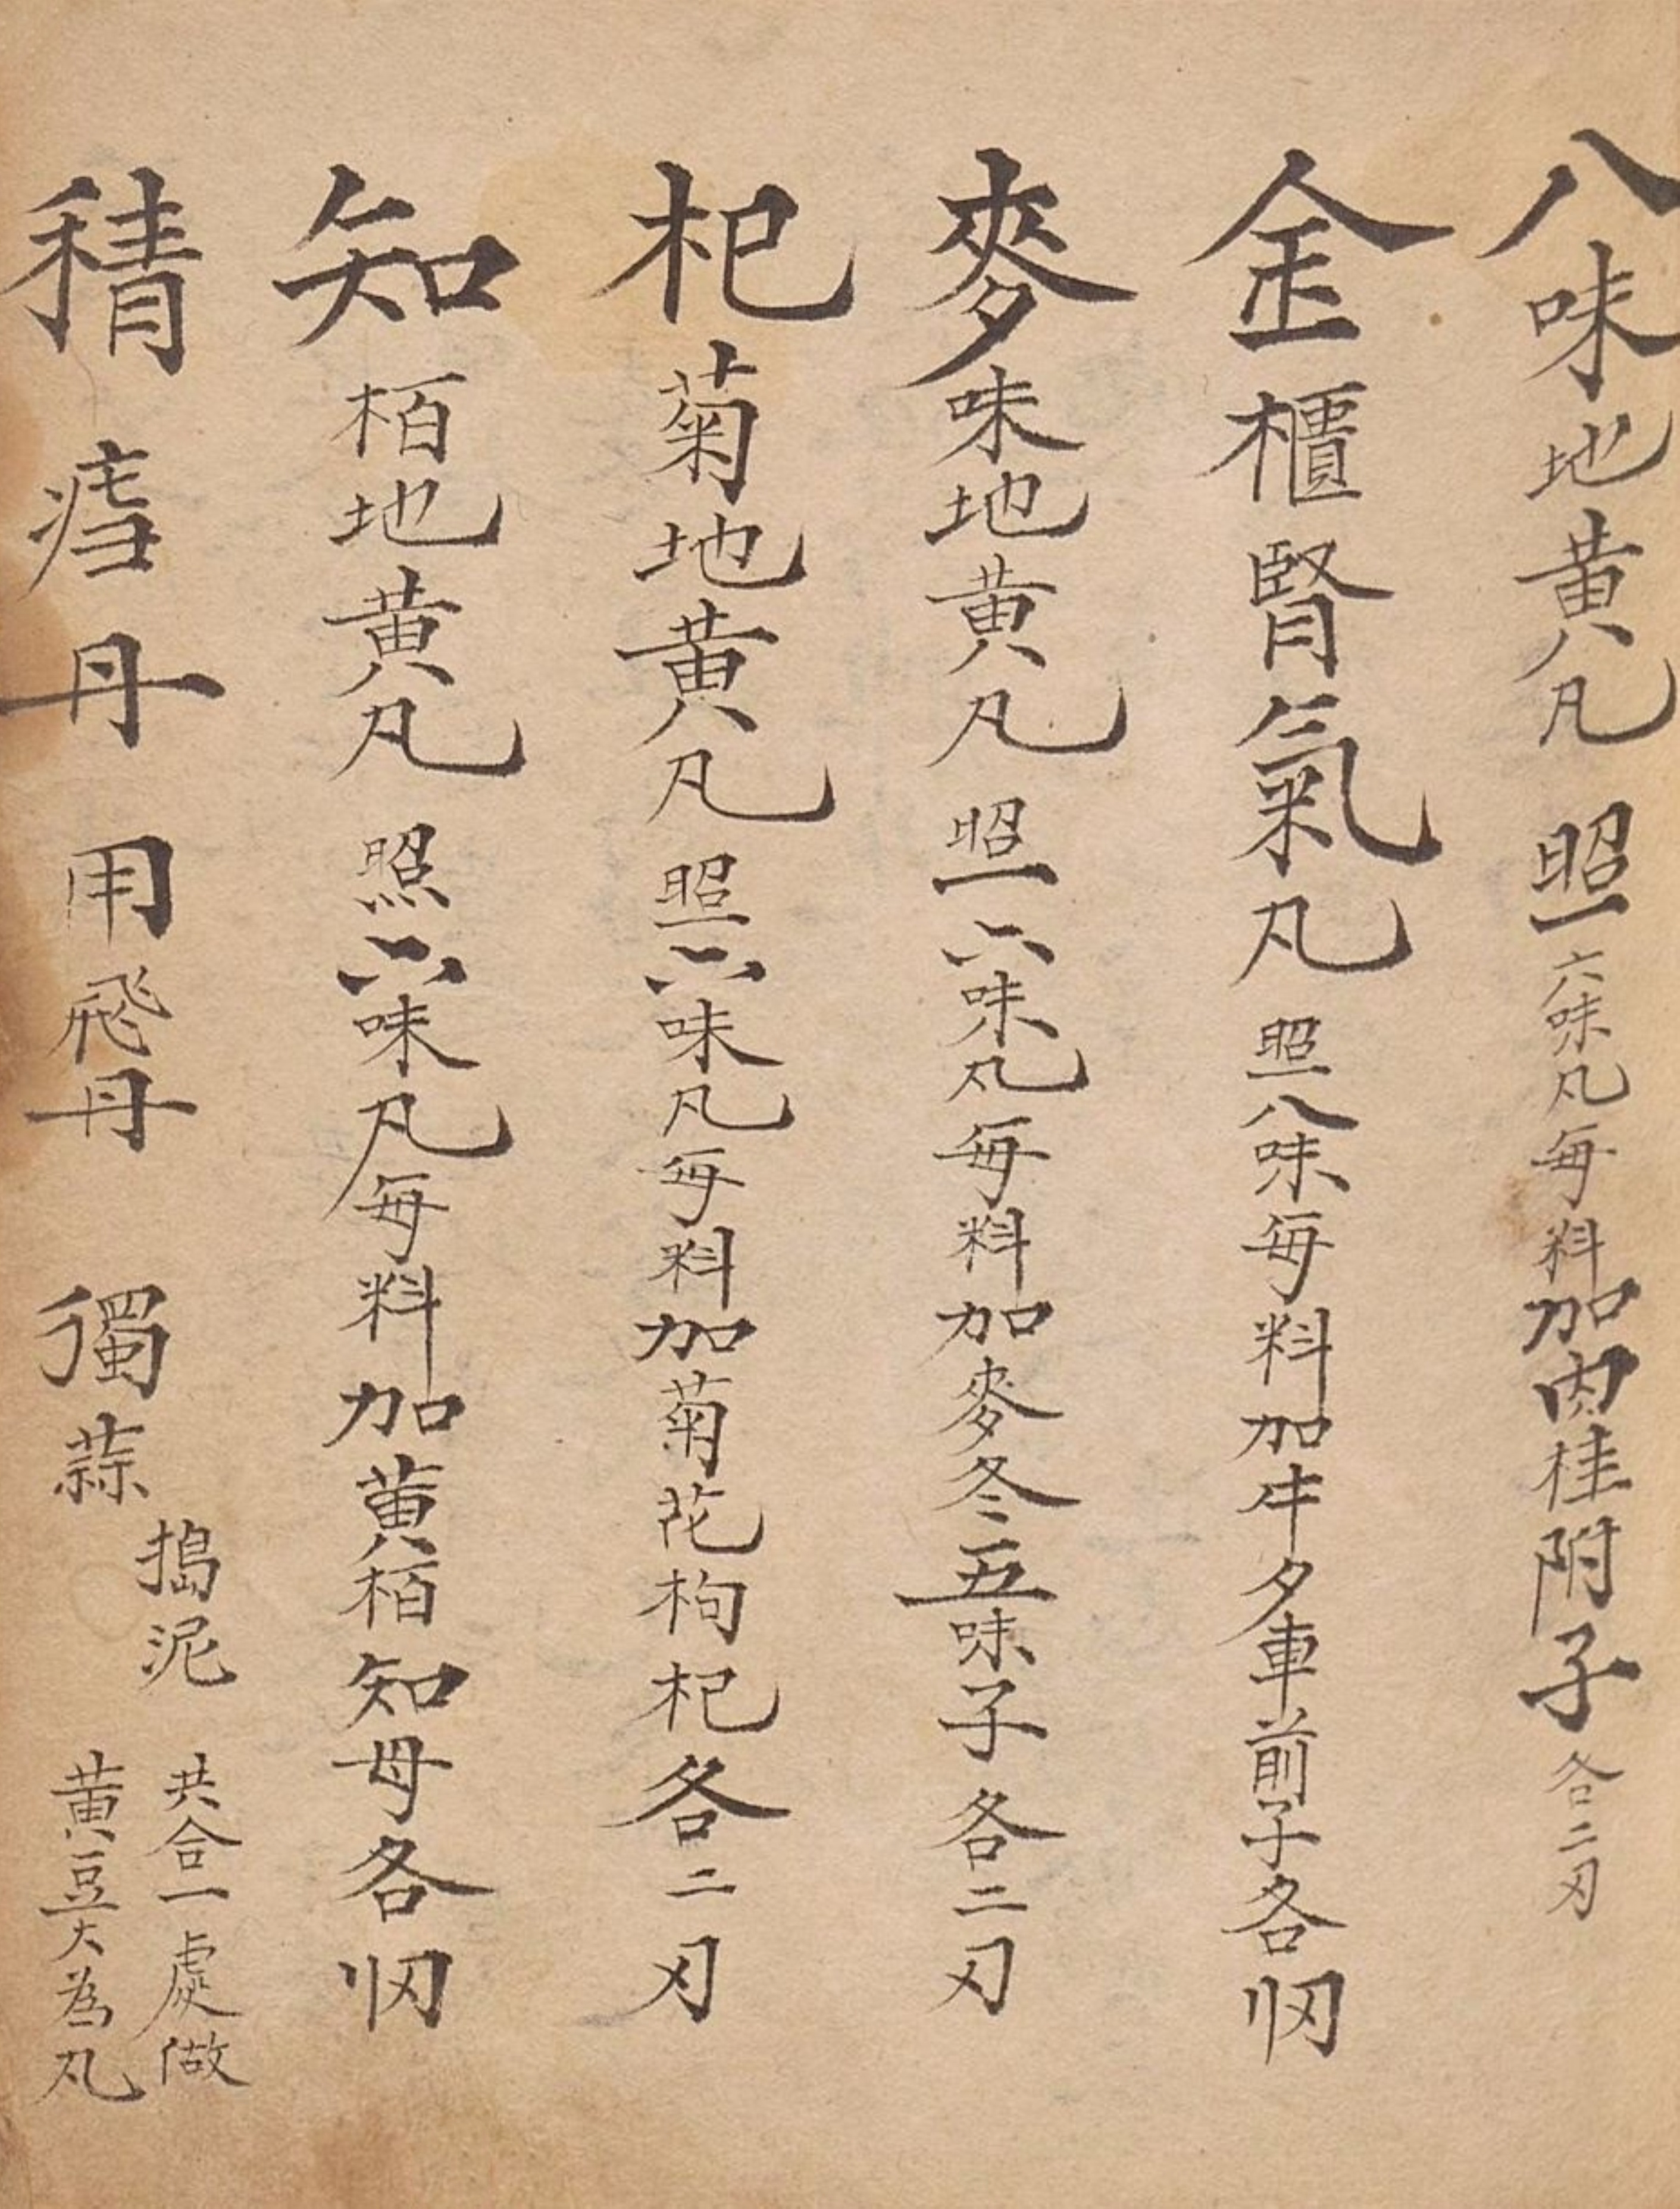 八味地黄凡 照六味凡每料加肉桂附子各二刃
金櫃腎氣凡 照八味每料加牛夕車前子各〢刃
麥味地黄凡 照六味凡每料加麥冬五味子各二刃
杞菊地黄凡 照六味凡每料加菊花枸杞各二刃
知栢地黄凡 照六味凡每料加黄栢知母各〢刃
䅡 丹 用飛丹 獨蒜
搗泥
共合一處做
黄豆大為凡